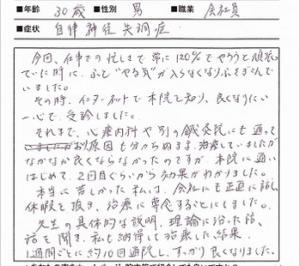 ■年齢 30歳 ■性別 男 ■職業 会社員
■症状 自律神経失調症
今回、仕事での忙しさで常に120%でやろうと頑張っ
ていた時に、ふと“やる気”が入らなくなりふさぎこんで
いました。
その時、インターネットで本院を知り、良くなりたい
一心で、受診しました。
それまで、心療内科や別の鍼灸院にも通って
おり原因も分からぬまま、治療していましたが
なかなか良くならなかったのですが 本院に通い
はじめて、2回目ぐらいから効果がわかりました。
本当に苦しかった私は、会社にも正直に話し
休暇を頂き、治療に専念することにしました。
先生の具体的な説明、理論に沿った治
話を聞き、私も納得して治療した結果、
1週間ごとに約10回通院し、すっかり良くなりました。